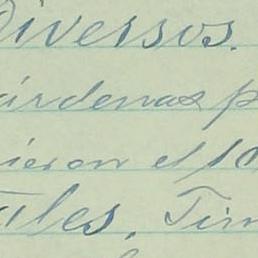 Diversos.
árdenas p
ieron el 10
ales, Tim